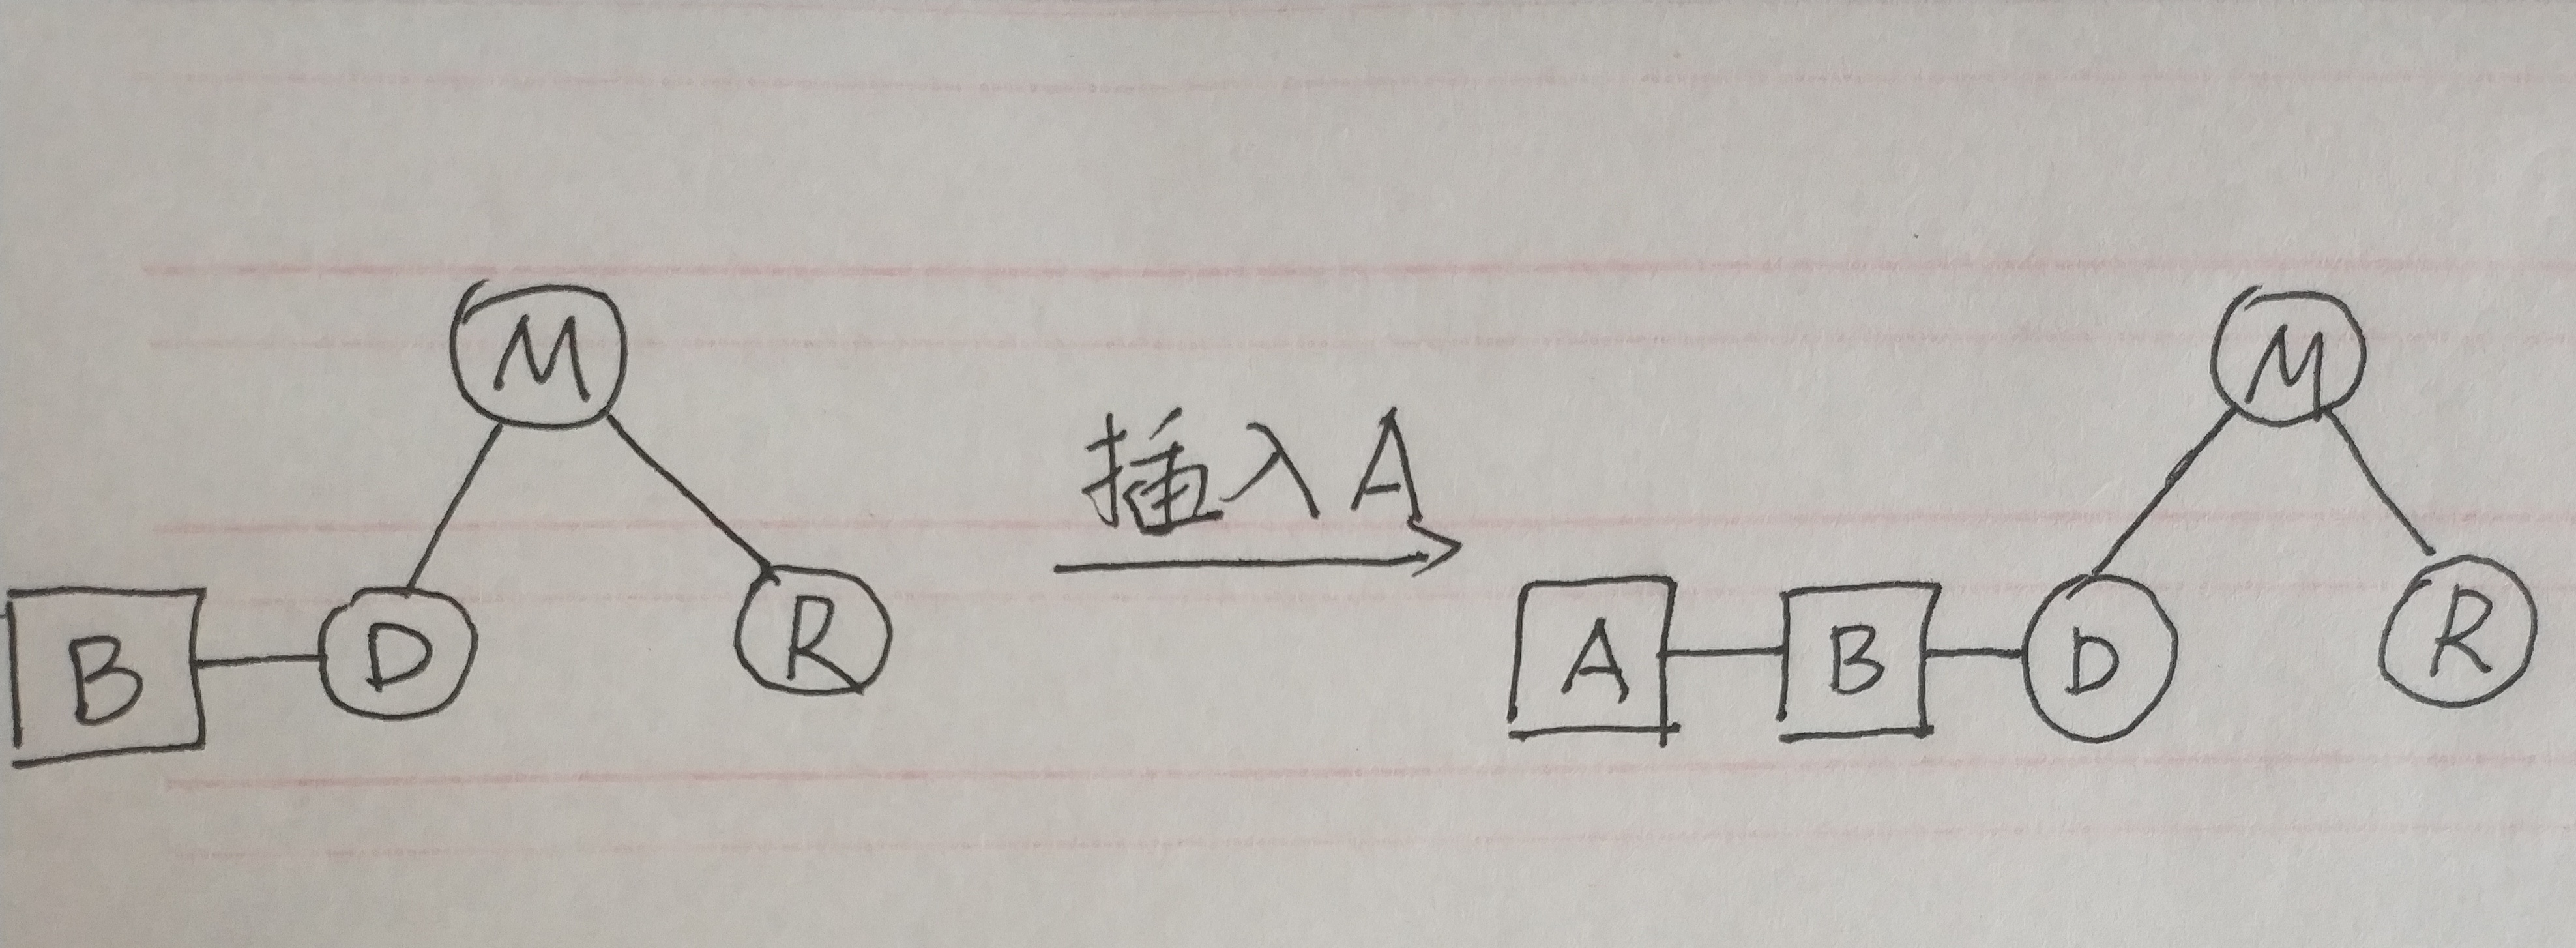 M
B D R
插入A
M
A B D R